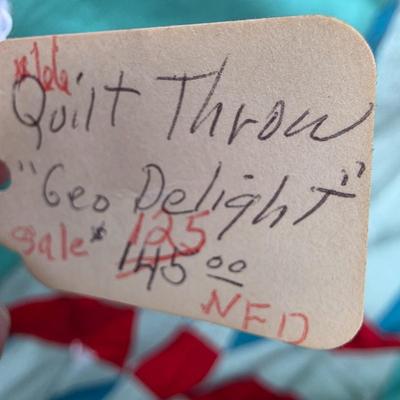 Quilt Throw
"Geo Delight"
Sale $ 125
145 00
NFD